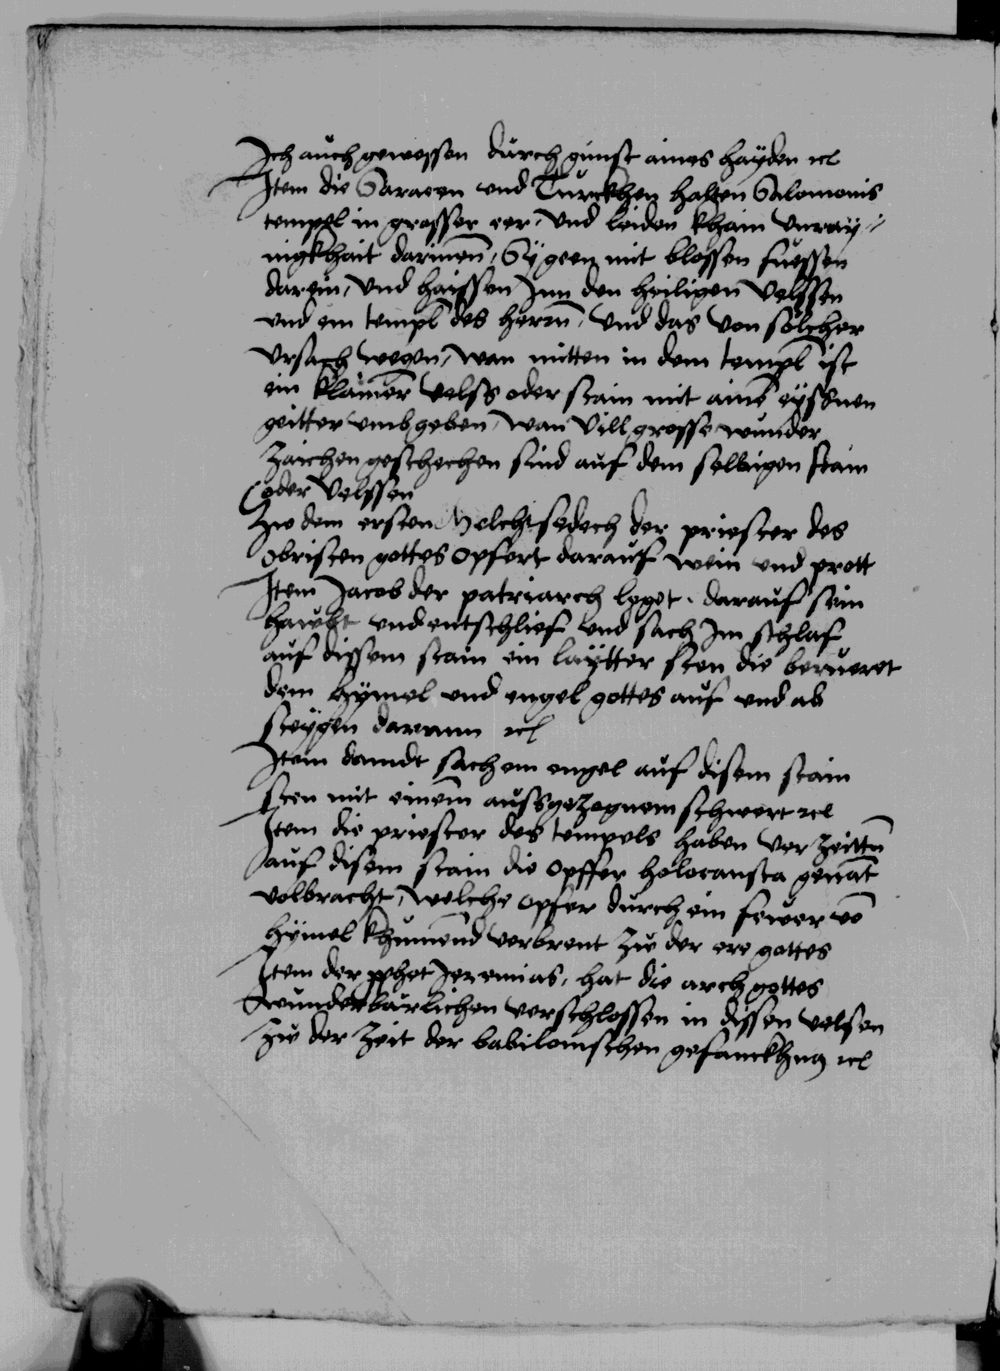 Ich auch gewessen durch gunst aines hayden ꝛcꝉ
Item die Saracen und Turckhen halten Salomonis
tempel in grosser eer, und leiden khain unray=
nigkhait darinnen, Sÿ geen mit blossen fuessen
darein, und haissen Inn den heiligen velssen
und ein templ des herrn, und das von solcher
ursach wegen, wan mitten in dem templ ist
ein klainer velss oder stain mit aine eyssnen
geitter umbgeben, wan vill grosse wunder
zaichen geschechen sind auf dem selbigen stain
oder velssen
Zw dem ersten Melchisedech der priester des
obristen gottes opfert darauf wein und prott
Item Jacob der patriarch leget darauf sein
haubt und entschlief und sach Im schlaf
auf dissem stain ein laÿtter sten die berueret
den hÿmel und engel gottes auf und ab
steÿgen darann ꝛcꝉ
Item davidt sach ein engel auf disem stain
sten mit einem aussgezognem schwert ꝛcꝉ
Item die priester des tempels haben vor zeittn̄
auf disem stain die opffer holocausta genāt
volbracht, welche opfer durch ein fewer vō
hÿmel khumēnd verbrent zw der ere gottes
Item der pphet Jeremias, hat die arch gottes
wunderbarlichen verschlossen in dissen velsen
zw der zeit der babilonischen gefanckhnus ꝛcꝉ